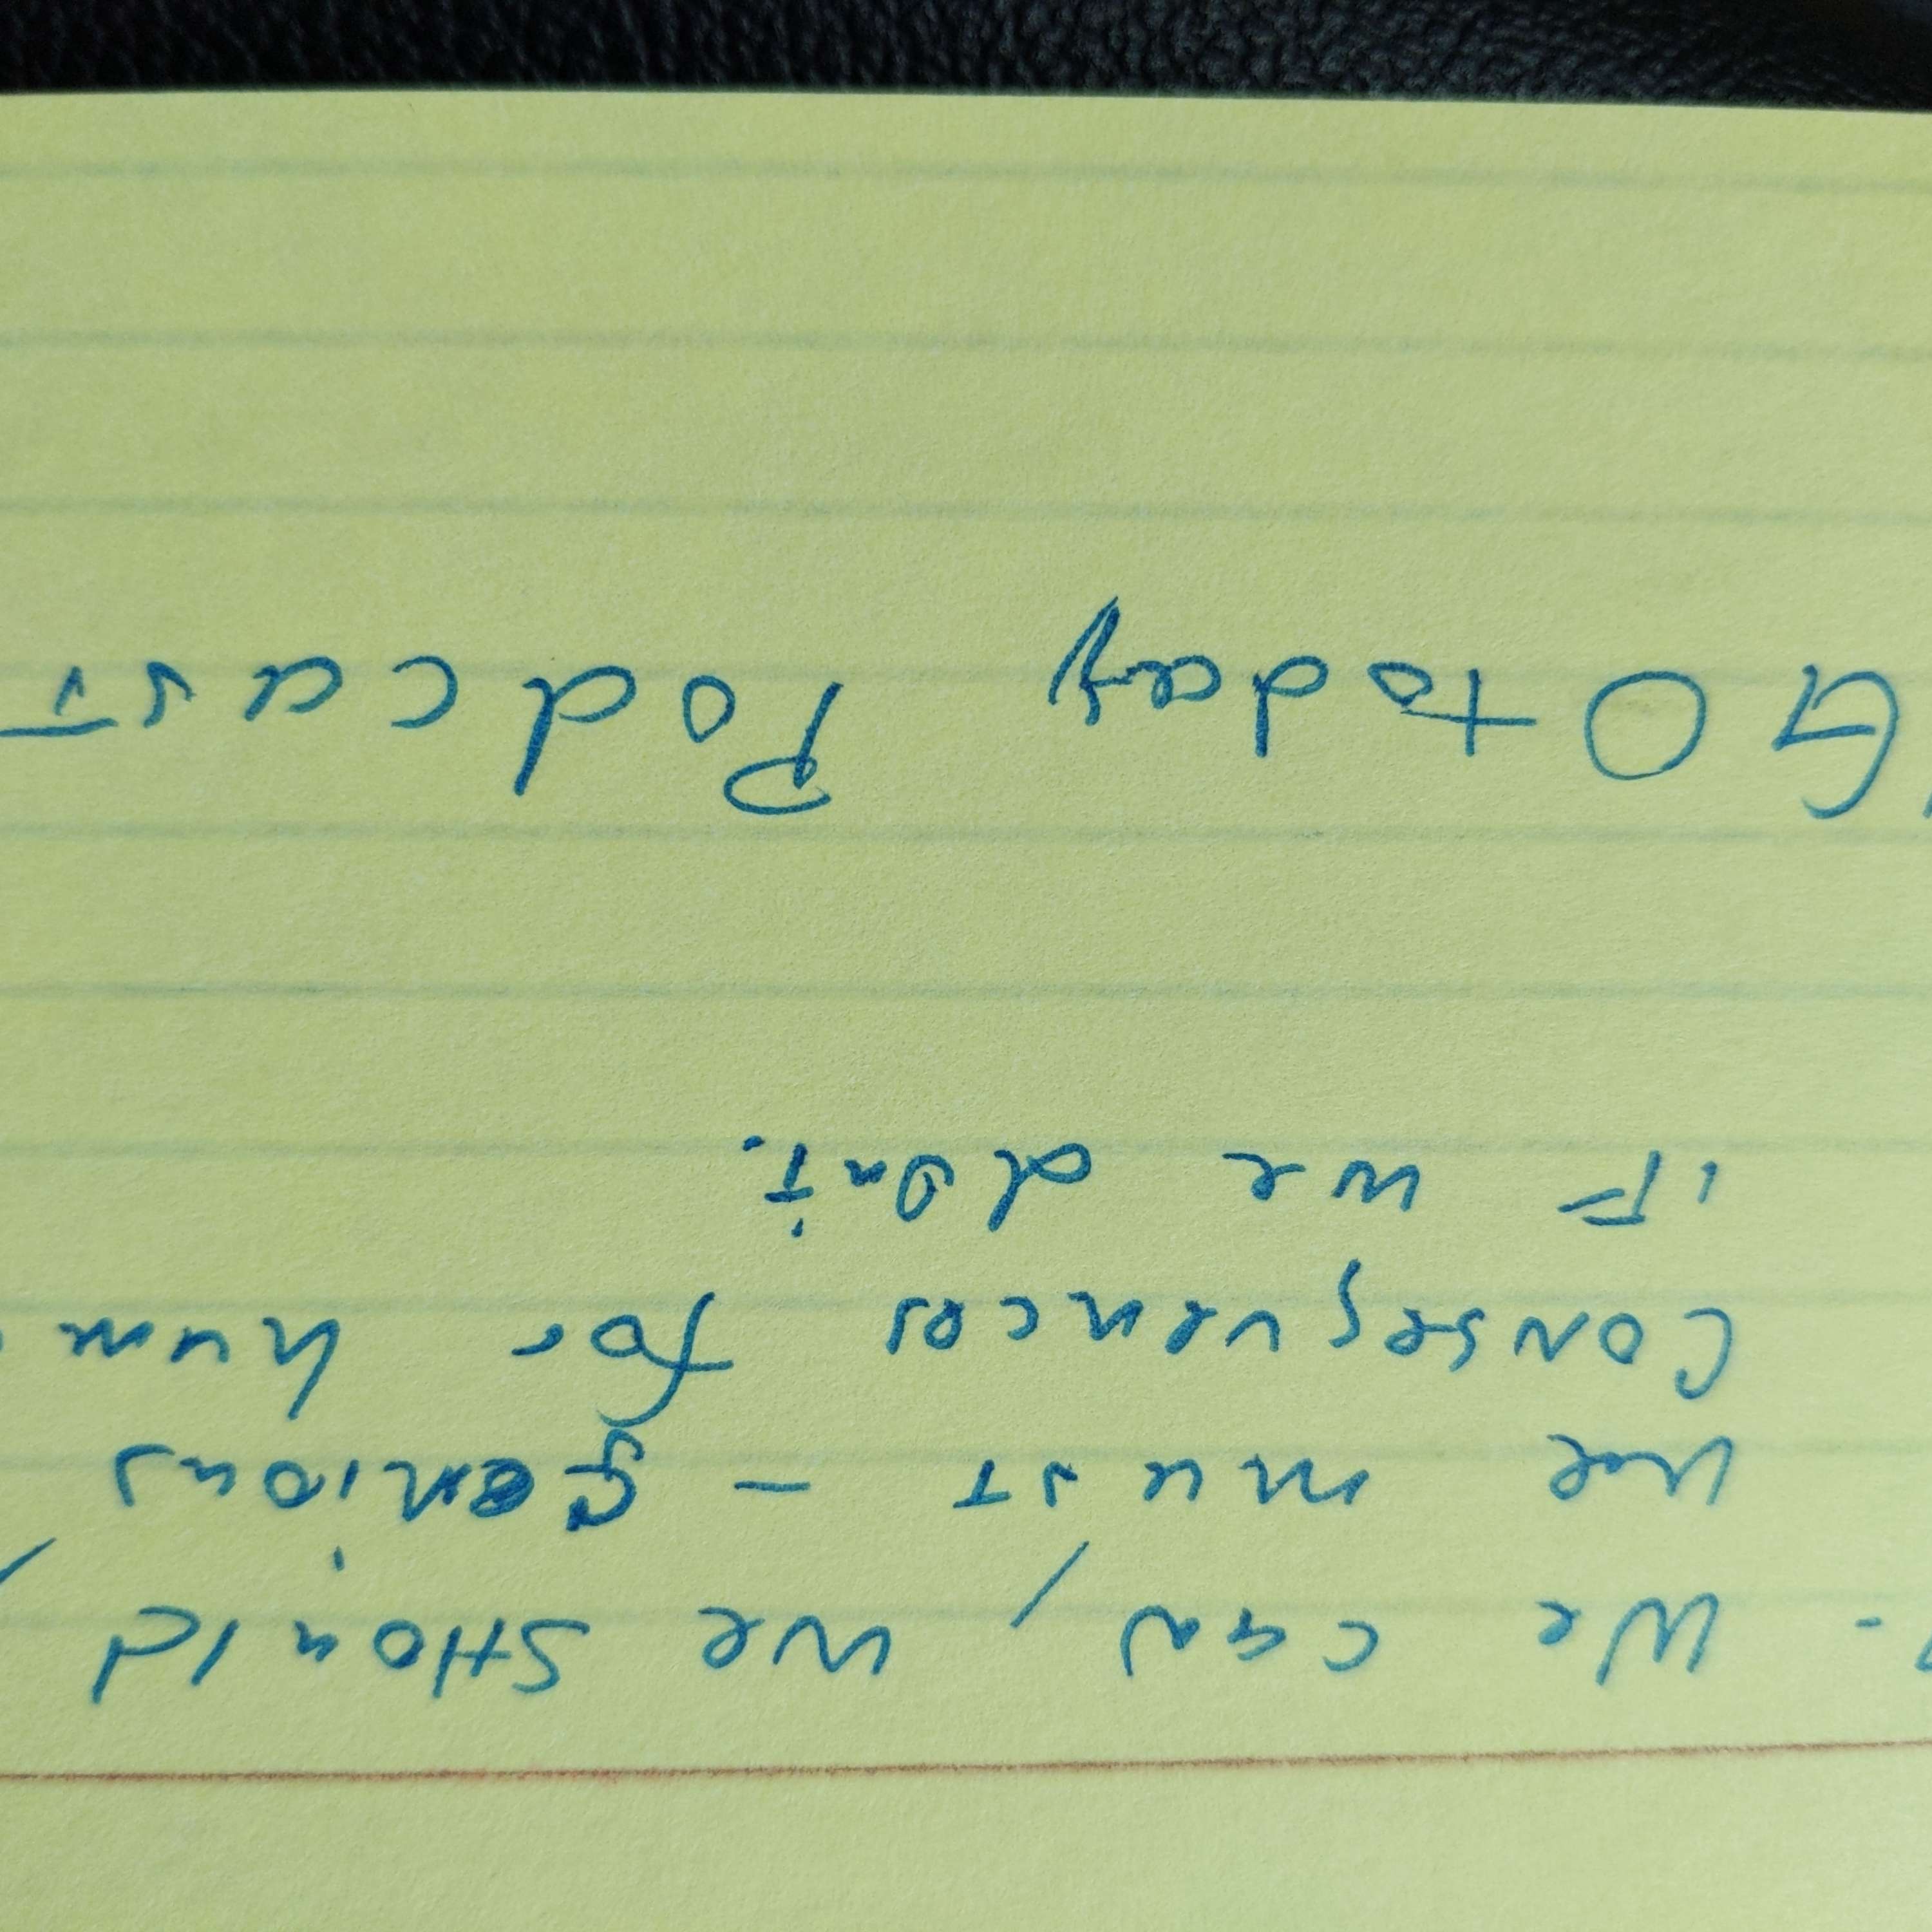 - We can, we SHould,
we must - serious
consequences for hum
iF we don't.
GO today PodcasT